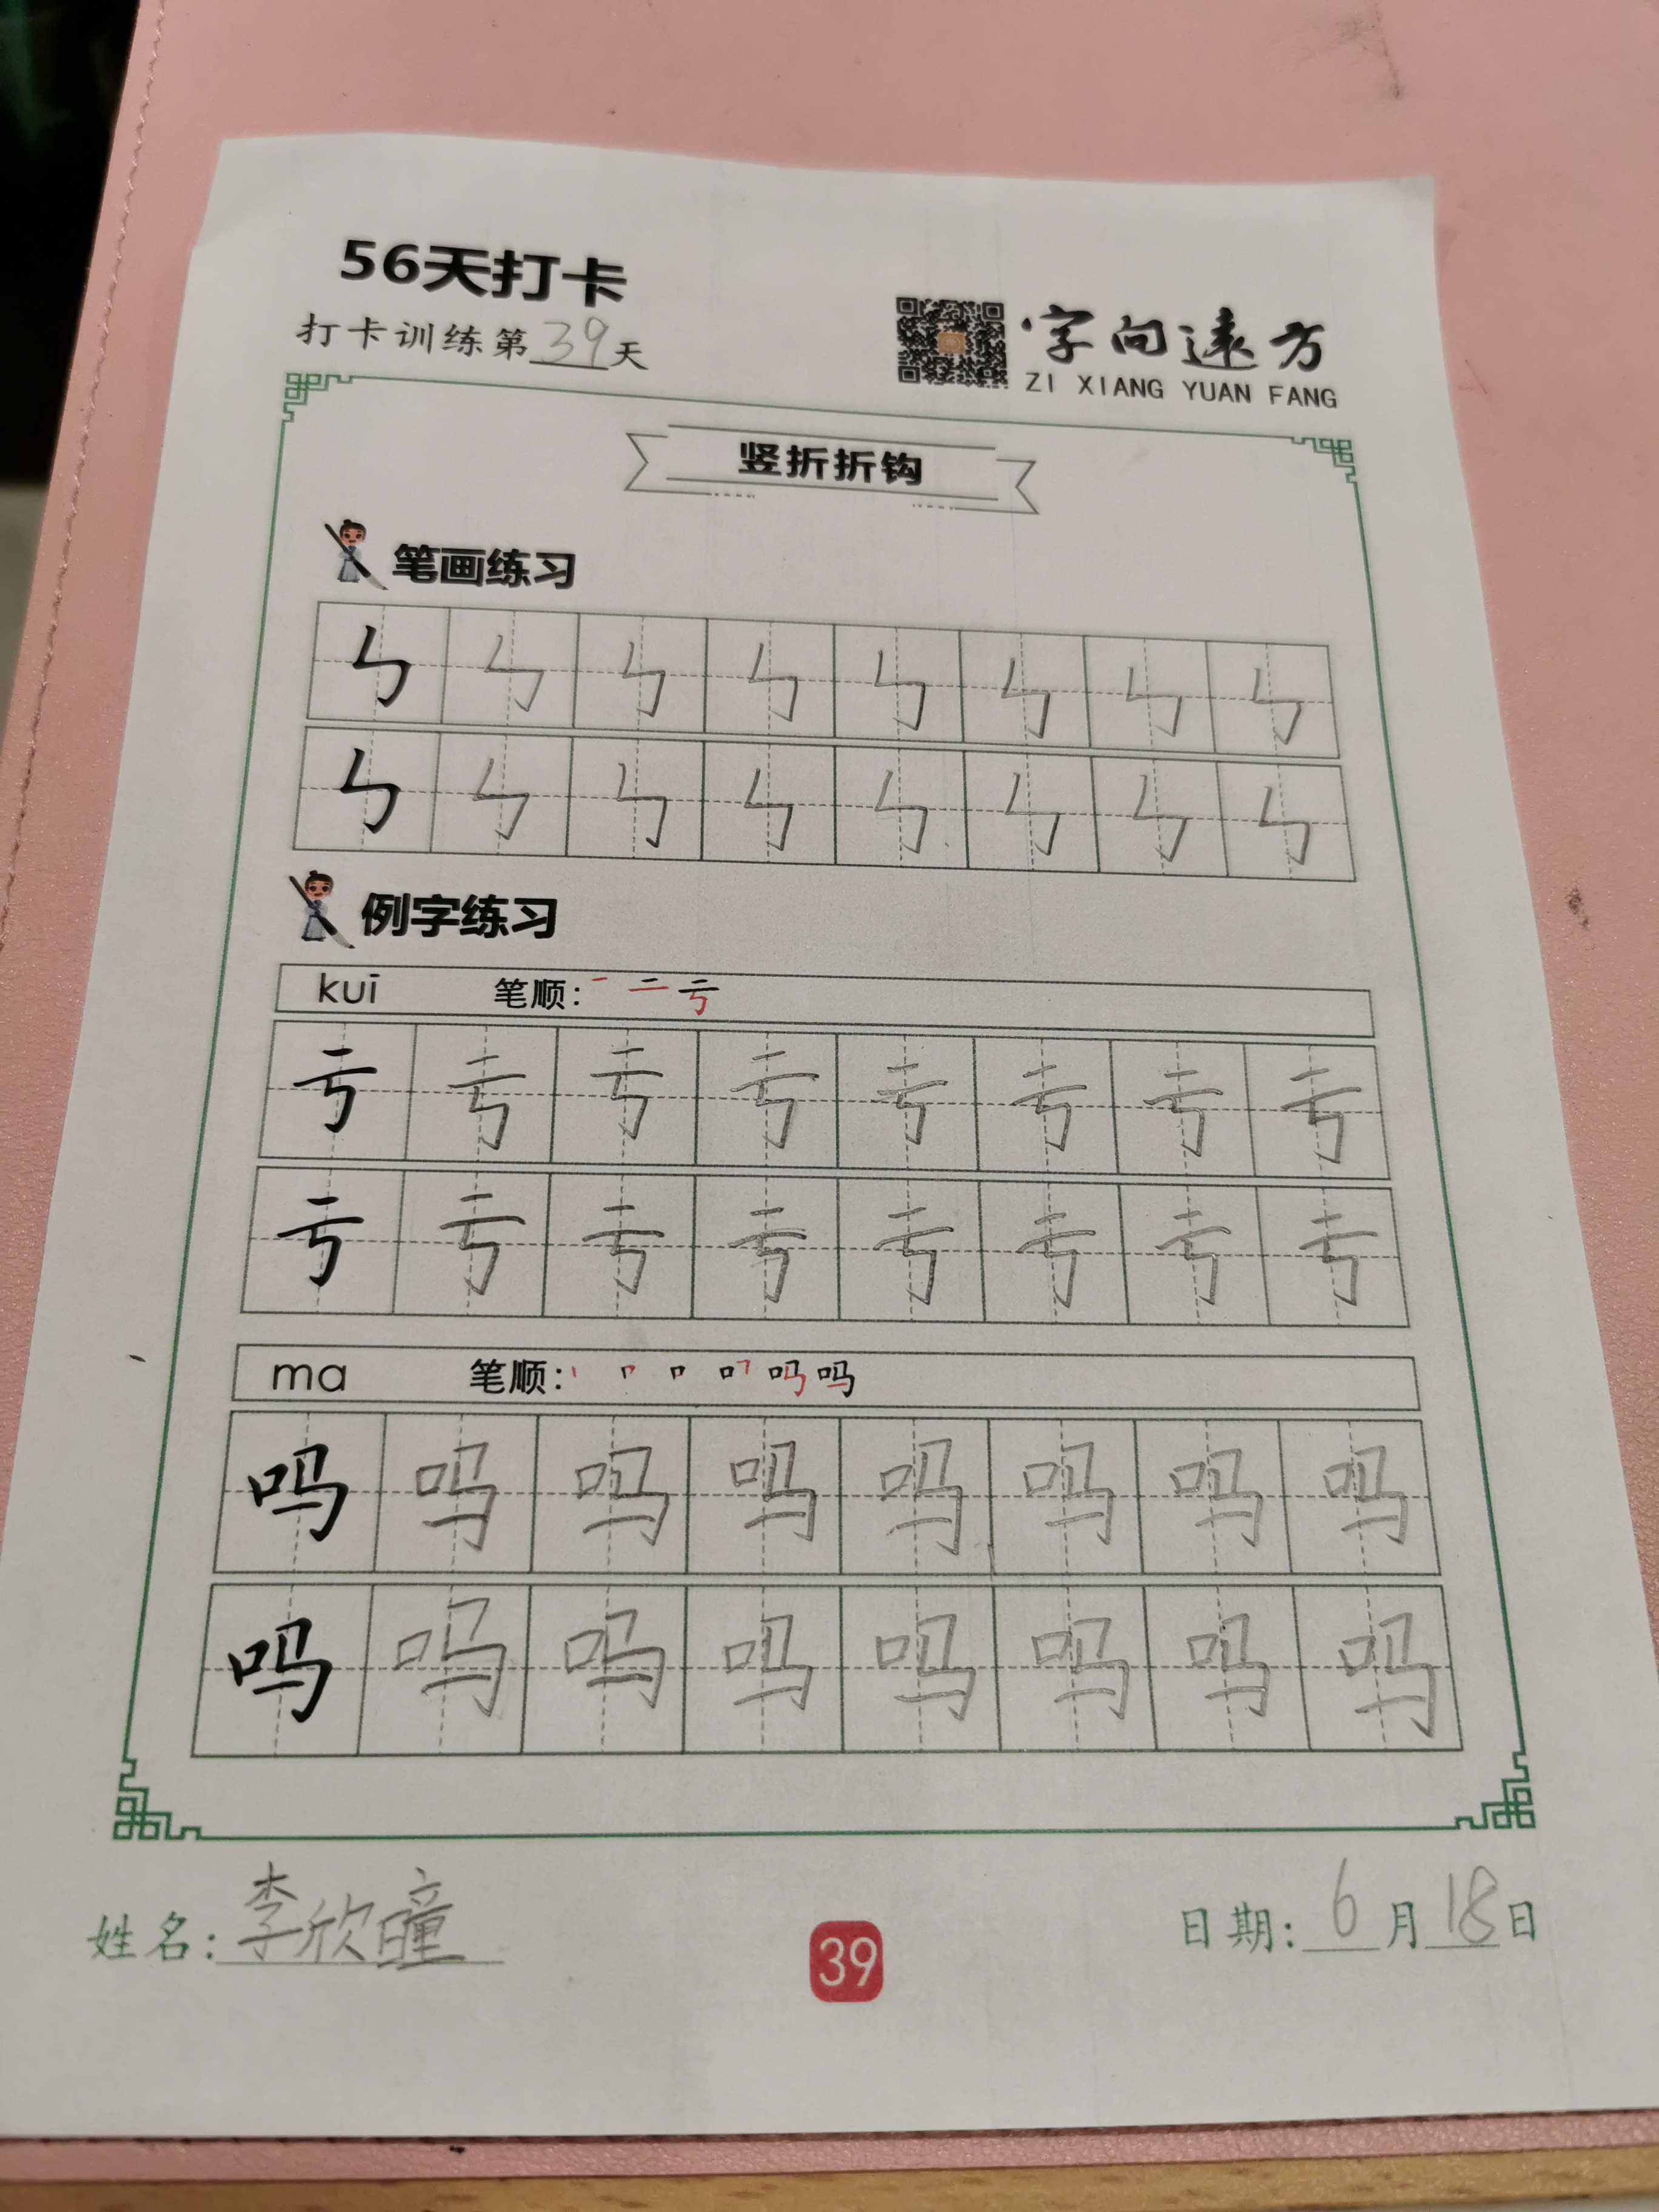 56天打卡
打卡训练第39天
字向远方
ZI XIANG YUAN FANG
竖折折钩
笔画练习
㇉ ㇉ ㇉ ㇉ ㇉ ㇉ ㇉ ㇉
㇉ ㇉ ㇉ ㇉ ㇉ ㇉ ㇉ ㇉
例字练习
kuī 笔顺: 一 二 亏
亏 亏 亏 亏 亏 亏 亏 亏
亏 亏 亏 亏 亏 亏 亏 亏
ma 笔顺: 吗
吗 吗 吗 吗 吗 吗 吗 吗
吗 吗 吗 吗 吗 吗 吗 吗
姓名: 李欣瞳
39
日期: 6月18日